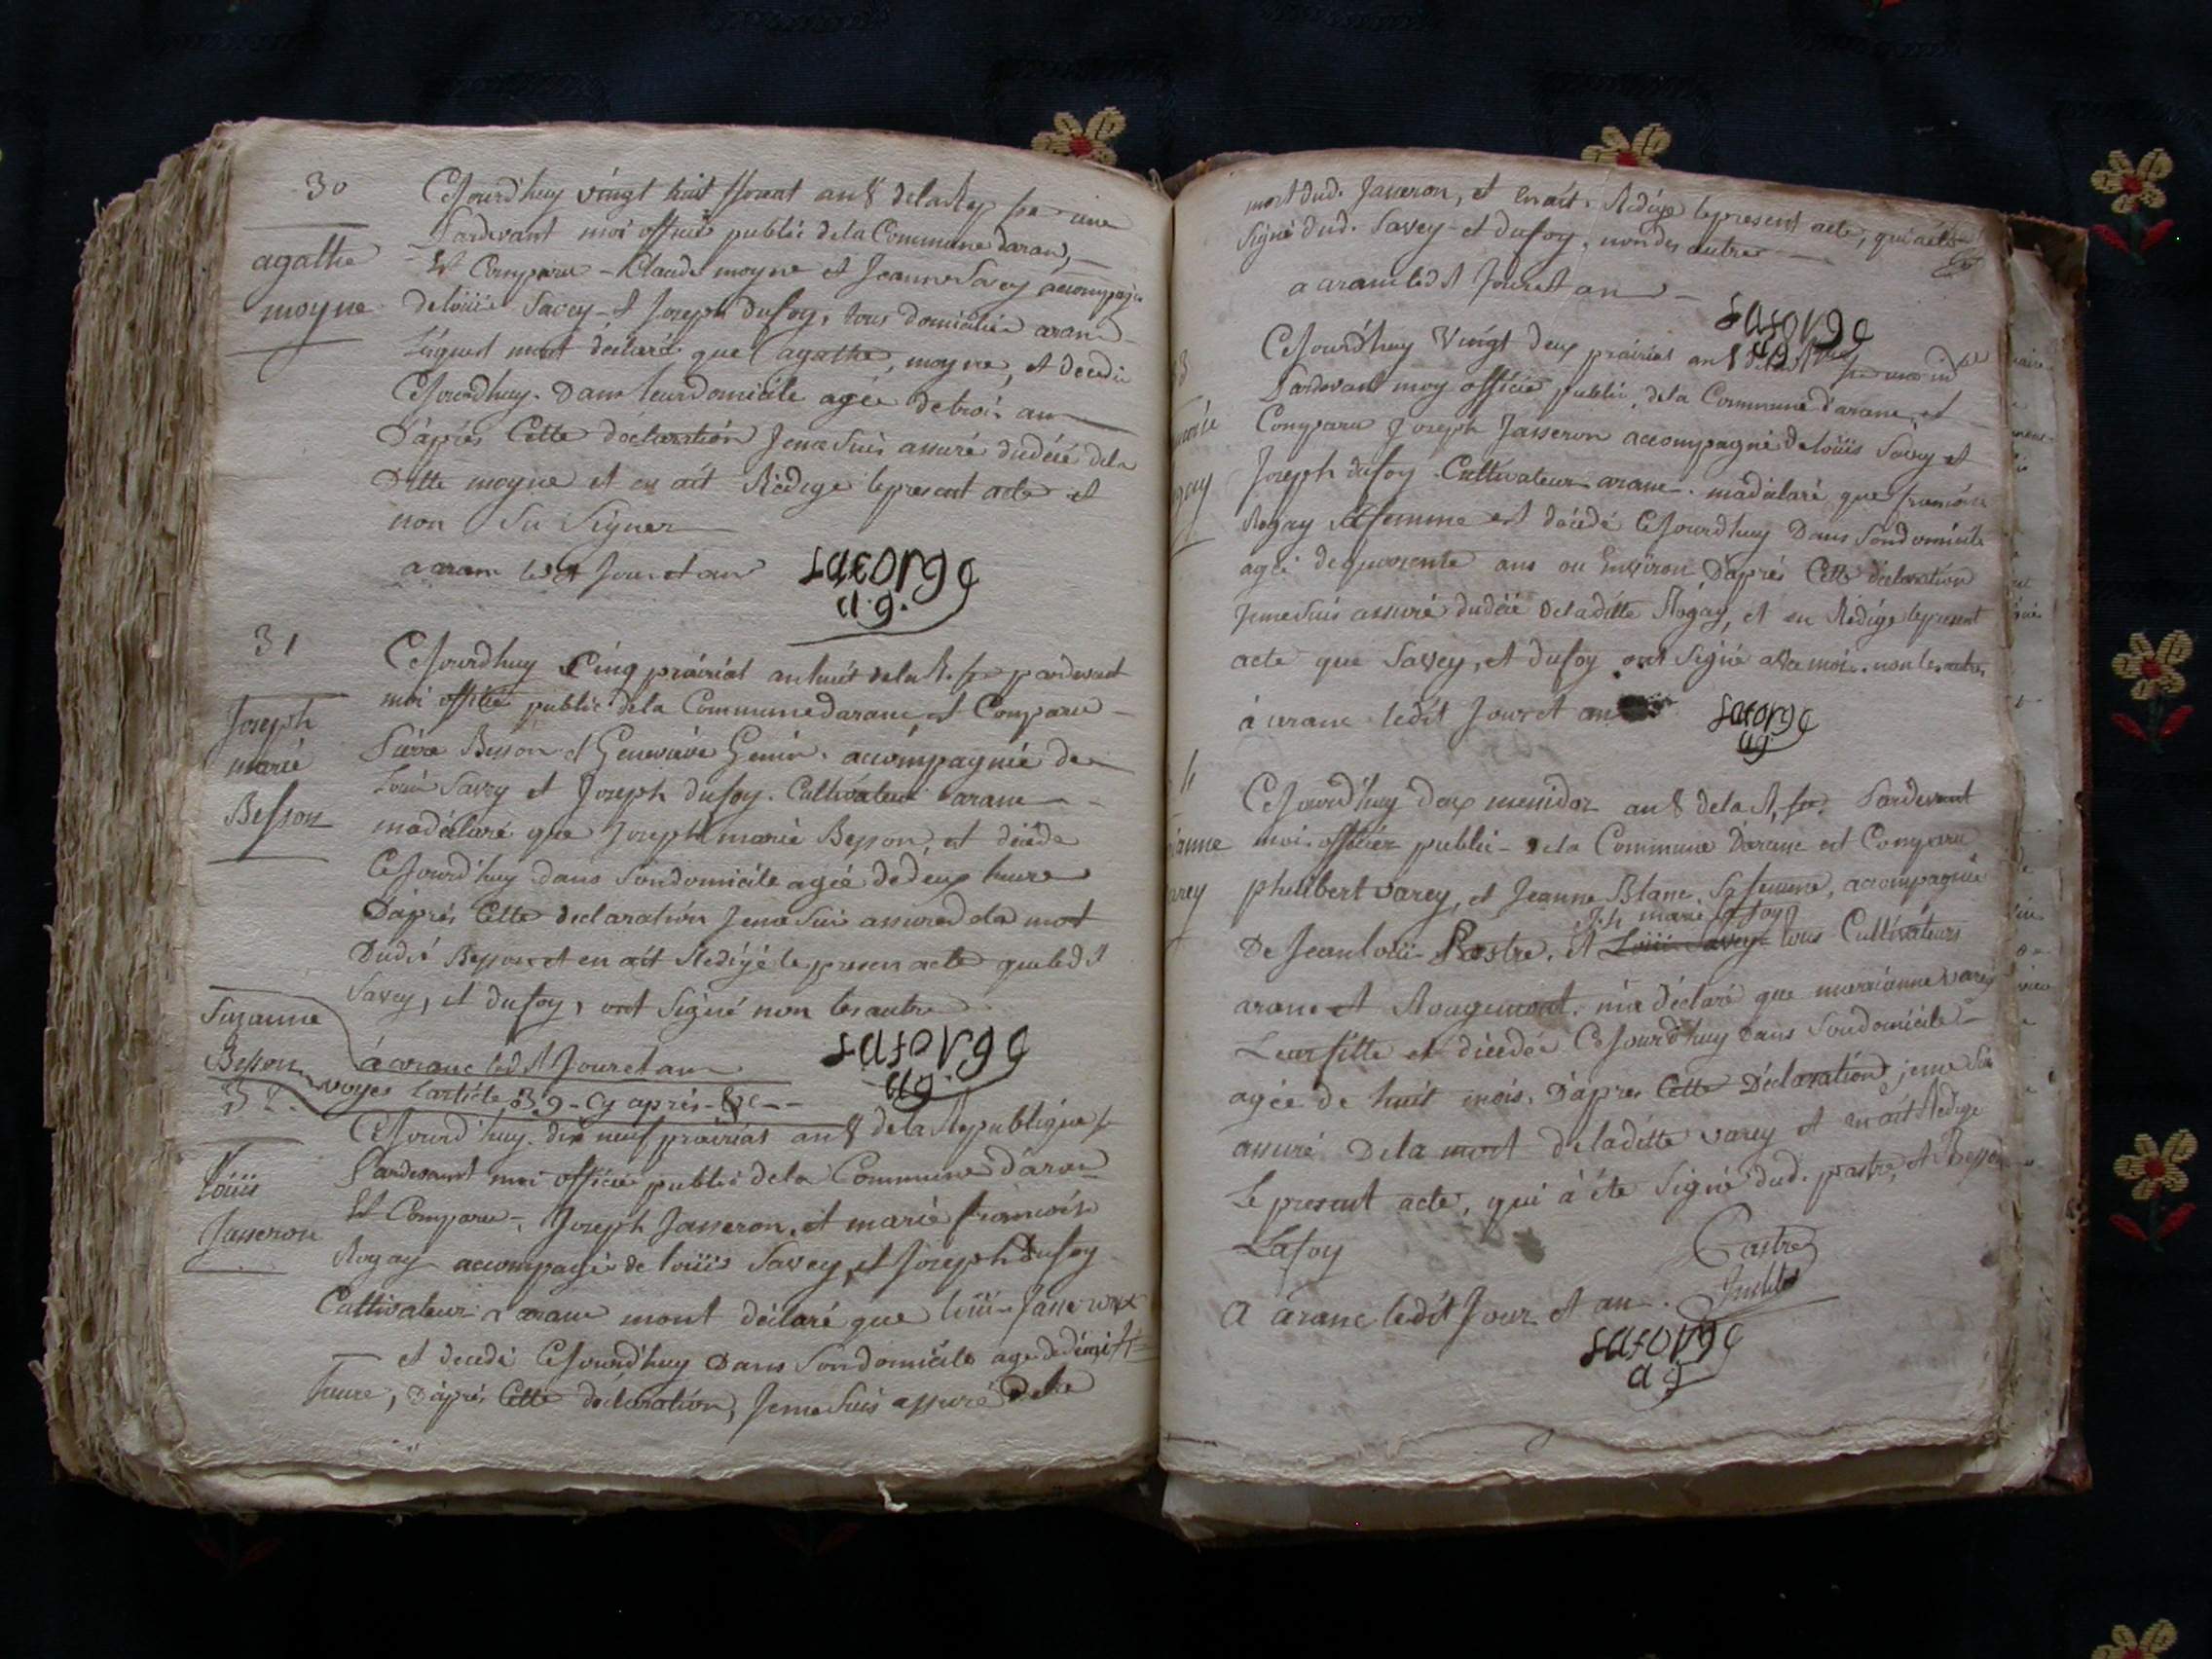 30
agathe
moyne
Cejourd'huy vingt huit floreal an 8 de la Rep fse une
Pardevant moi officié public de la Commune daran,
Et Comparu - Claude moyne et Jeanne Savey accompagé
de loüis Savey et Joseph dufoy, tous domicilié aranc
Léquel mont déclaré que agathe, moyne, et décédé
Cejourdhuy. Dans leur domicile agée de trois ans
D'après Cette déclaration Jeme Suis assuré dudécé dela
Ditte moyne et en ait Rédigé lepresent acte et
non Su Signer
a aranc led t Jour et an
Laforge
a.g.
31
Joseph
marie
Besson
Cejourdhuy Cinq prairial an huit dela R. fse pardevant
moi offitié public dela Commune daranc et Comparu
Pierre Besson et Genevieve Genin. accompagnié de
Loüis Savey et Joseph dufoy. Cultivateur aranc
madéclaré que Joseph marie Besson, et décédé
Cejourd'huy dans Sondomicile agée de deux heure
D'après Cette declaration Jeme Suis assuré dela mort
Dudit Besson et en ait Rédigé le presen acte que led t
Savey, et dufoy, ont Signé non les autre
à aranc led t Jour et an
Laforge
ag.
Suzanne
Besson
voyes l'article 39 - Cy après - &c
32
Loüis
Jasseron
Cejourd'huy. dix neuf prairial an 8 dela Republique f
Pardevant moi officié public dela Commune d'aranc
Et Comparu - Joseph Jasseron, et marie francoise
Rogay accompagé de loüis Savey, et Joseph Dufoy
Cultivateur a aranc mont déclaré que loüis Jasseron
et decedé Cejourd'huy Dans Sondomicile age de
heure, D'après Cette declaration, Jeme Suis assuré dela
mort dud. Jasseron, et en ait Rédigé lepresent acte, qui a eté
Signé dud. Savey et dufoy, non des autre
a aranc led t Jour et an
Laforge
ag
Cejourd'huy Vingt deux prairial an 8
Pardevant moy officié public, dela Commune d'aranc, et
Comparu Joseph Jasseron accompagné de loüis Savey et
Joseph dufoy Cultivateur aranc. madéclaré que francoise
Rogay Safemme est décédé Cejourdhuy Dans Sondomicile
agée dequarente ans ou Environ, D'après Cette déclaration
Jeme Suis assuré dudécé Deladitte Rogay, et en Rédigé lepresent
acte que Savey, et dufoy ont Signé avec moi. non les autre,
à aranc ledit Jour et an
Laforge
ag.
ianne
arey
Cejourd'huy deux messidor an 8 dela R, fse. Pardevant
moi officier public dela Commune D'aranc est Comparu
philibert varey, et Jeanne Blanc, Sa femme, accompagnée
Jh marie lafoy
De Jean loüis Pastre, et Loüis Savey tous Cultivateurs
aranc et Rougemont. m'a déclaré que marianne varey
Leur fille et décédée Cejourd'huy dans Sondomicile
agée de huit mois, D'après Cette Déclaration jeme Suis
assuré Dela mort deladitte varey et en ait Rédigé
Le present acte, qui à éte Signé dud. pastre, et Besson
Lafoy
Pastre
A aranc ledit Jour et an.
Laforge
ag